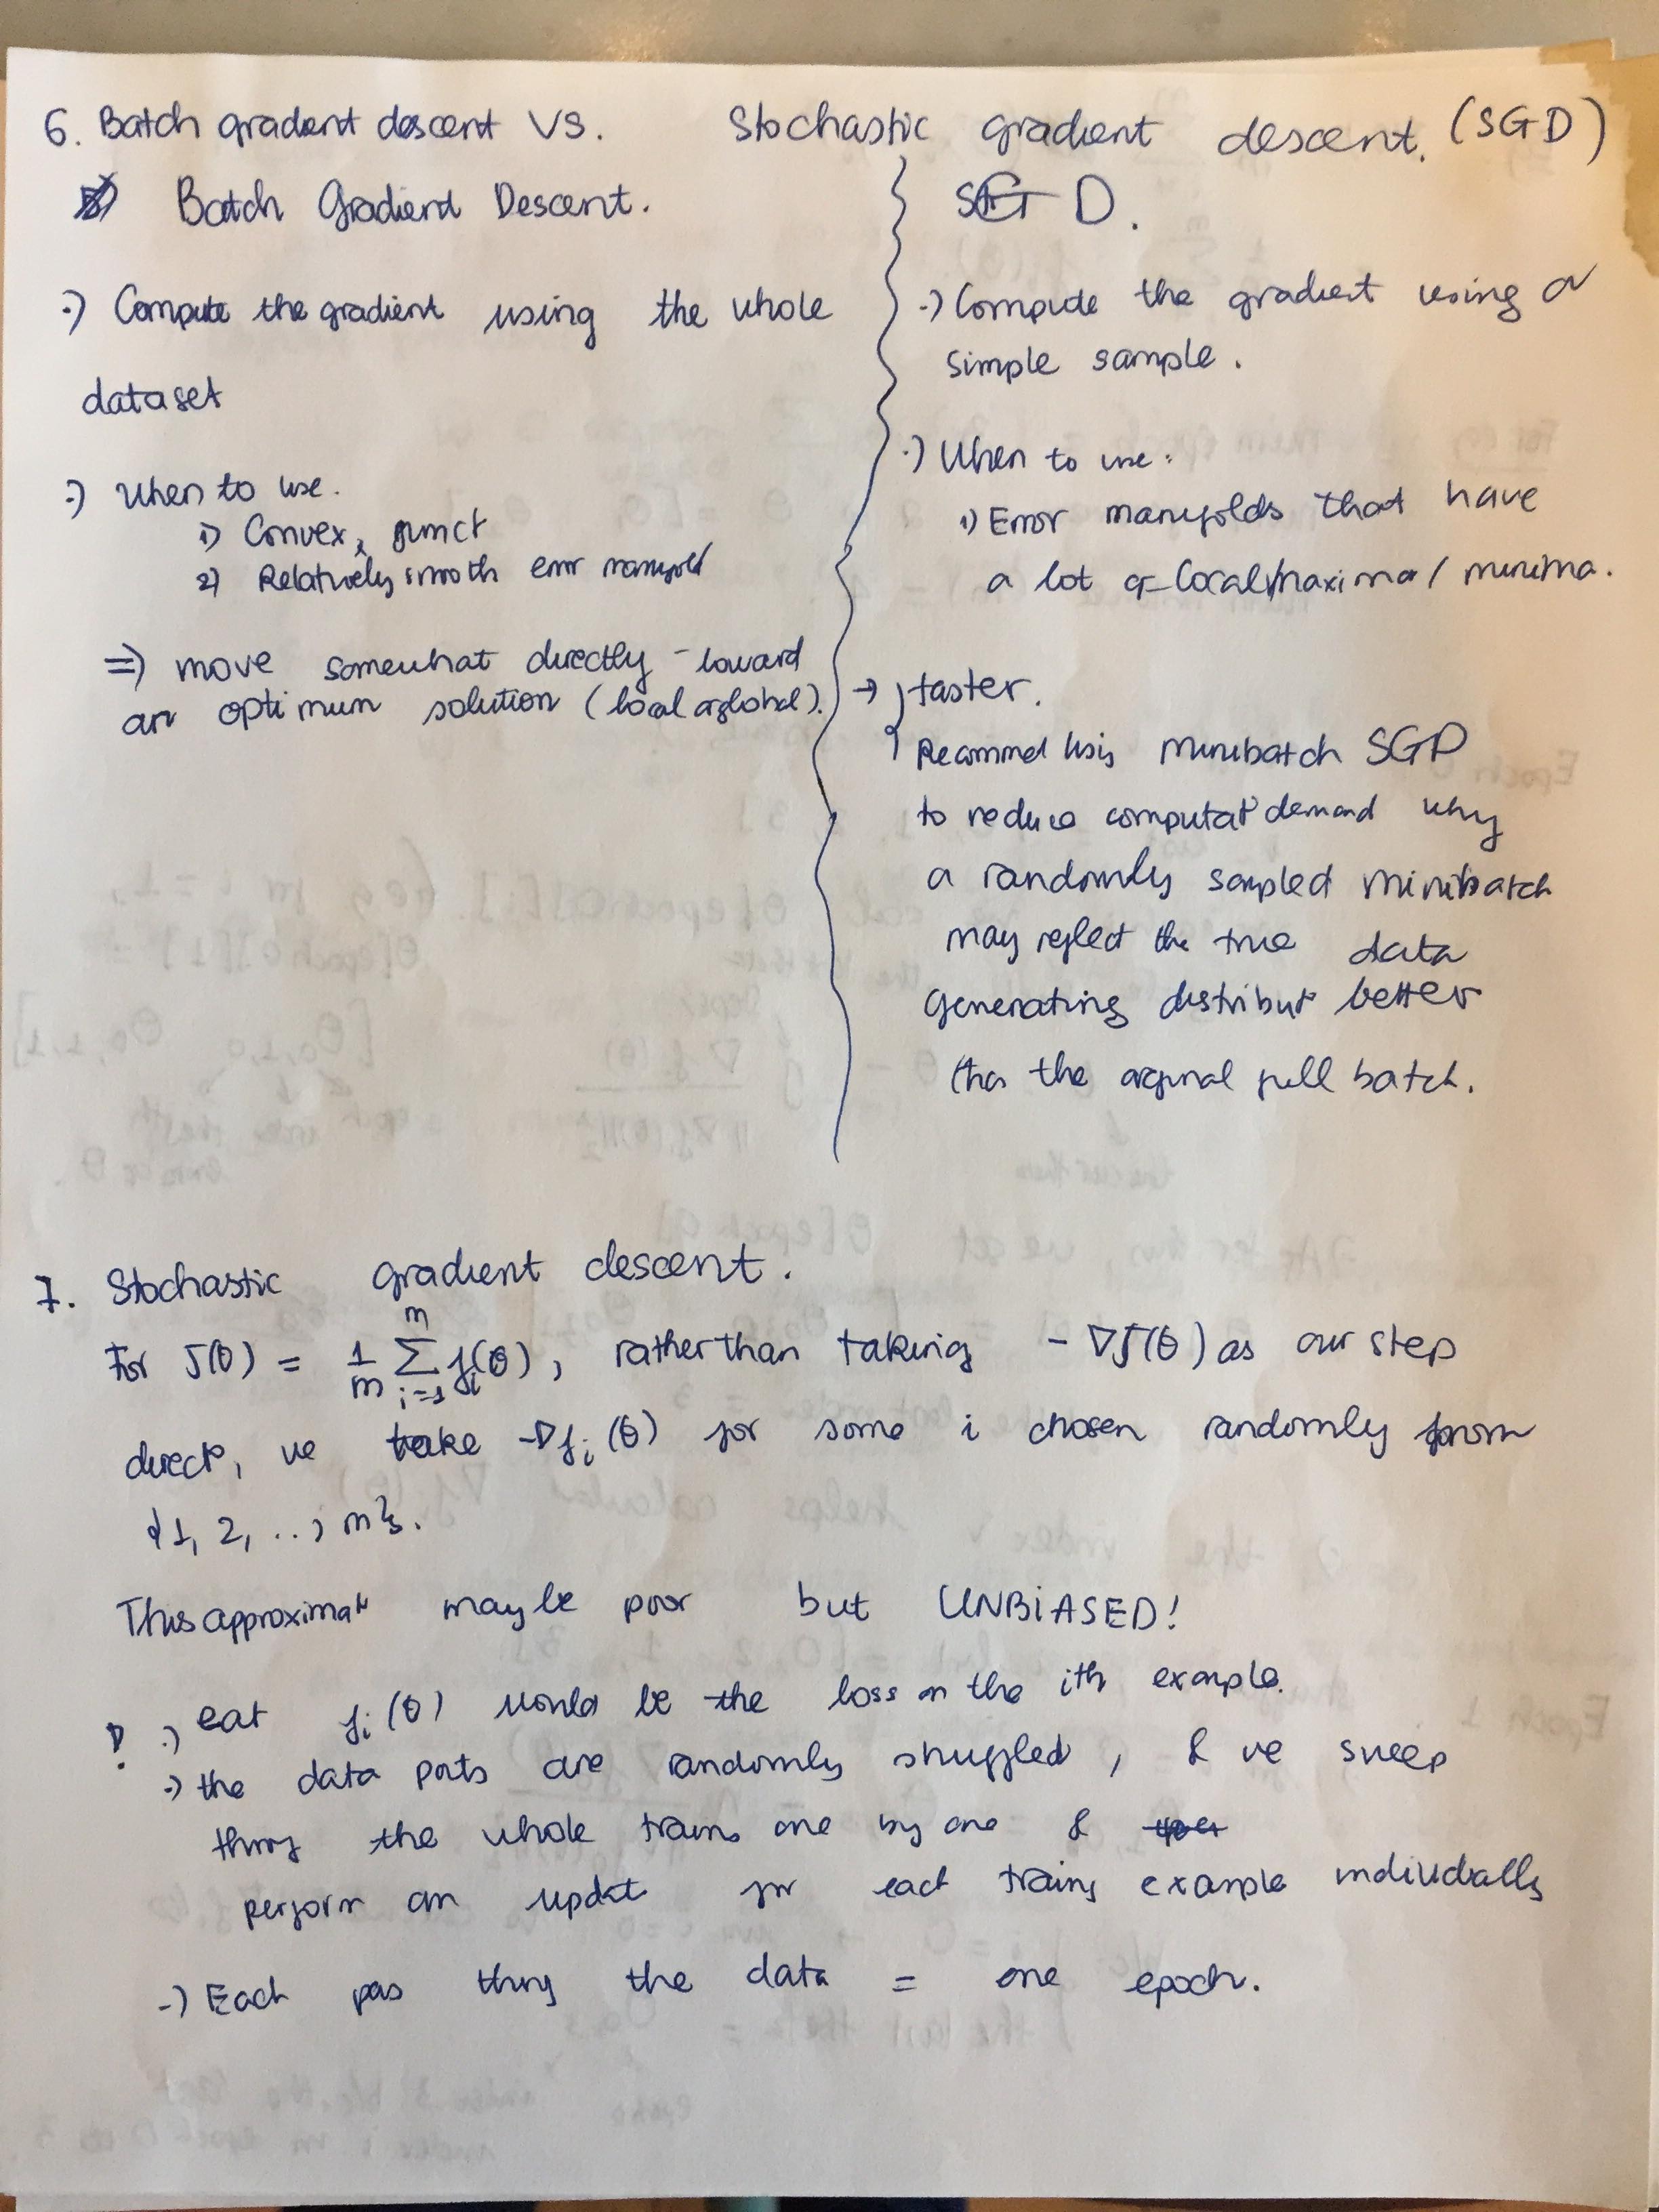 6. Batch gradient descent VS. Stochastic gradient descent. (SGD)
Batch Gradient Descent.
·) Compute the gradient using the whole
dataset
·) When to use.
1) Convex, funct
2) Relatively smooth error manifold
=) move somewhat directly toward
an optimum solution (local or global).
SGD.
·) Compute the gradient using a
simple sample.
·) When to use:
1) Error manifolds that have
a lot of local maxima / minima.
→ faster.
Recommend using minibatch SGD
to reduce computat° demand why
a randomly sampled minibatch
may reflect the true data
generating distribut° better
than the orginal full batch.
7. Stochastic gradient descent.
For J(θ) = 1/m Σ_{i=1}^{m} f_i(θ), rather than taking - ∇J(θ) as our step
direct°, we take -∇f_i(θ) for some i chosen randomly from
{1, 2, .., m}.
This approximat° may be poor but UNBIASED!
·) each f_i(θ) would be the loss on the ith example.
·) the data points are randomly shuffled, & we sweep
throug the whole training one by one &
perform an update for each training example individually
-) Each pass throug the data = one epoch.